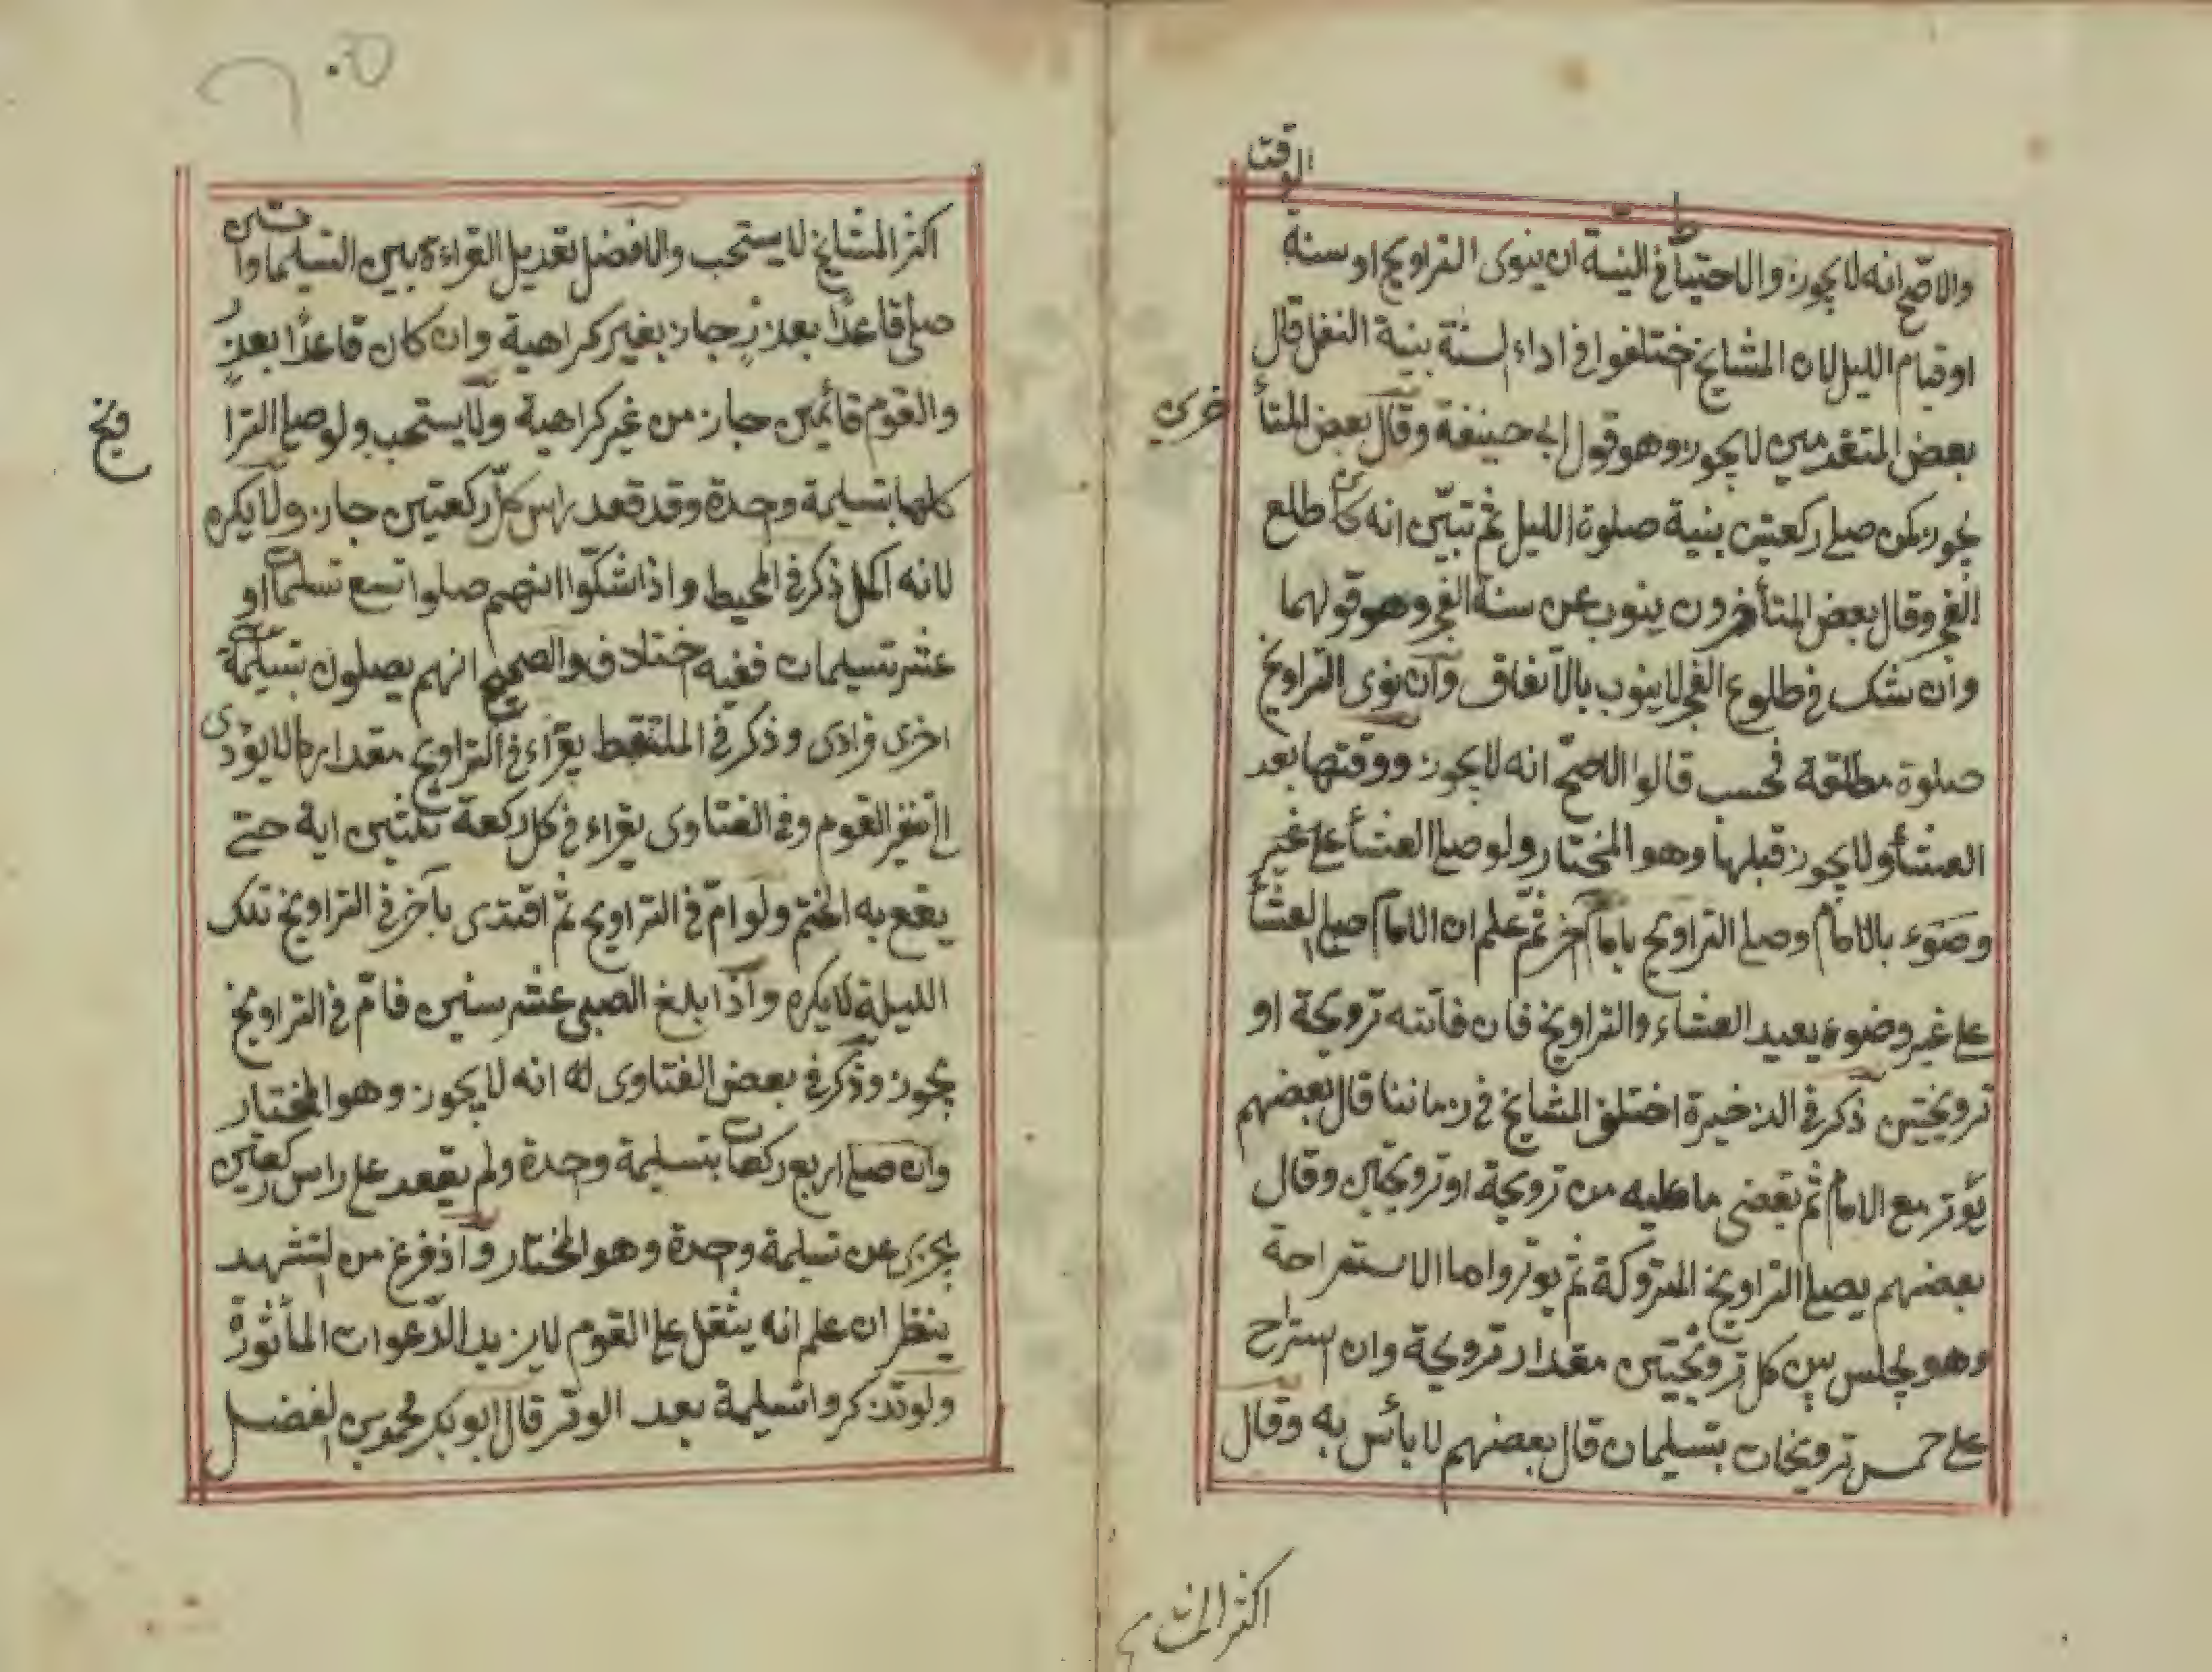 والاصح انه لا يجوز والاحتياط في النية ان ينوى التراويح او سنة
الوقت
او قيام الليل لان المشايخ ختلفوا في اداء السنة بنية النفل قال
بعض المتقدمين لا يجوز وهو قول ابى حنيفة وقال بعض المتأ
خرين
يجوز كمن صلى ركعتين بنية صلوة الليل ثم تبيّن انه كان طلع
الفجر وقال بعض المتأخرون ينوب عن سنة الفجر وهو قولهما
وان شك في طلوع الفجر لا ينوب بالاتفاق وان نوى التراويح
صلوة مطلقة فحسب قالوا الاصحّ انه لا يجوز ووقتها بعد
العشأ ولا يجوز قبلها وهو المختار ولو صلى العشأ على غير
وضوء بالامام وصلى التراويح بامام آخر ثمّ علم ان الامام صلى العشأ
على غير وضوء يعيد العشاء والتراويح فان فاتته ترويحة او
ترويحتين ذكر في الذخيرة اختلف المشايخ في زماننا قال بعضهم
يؤتر مع الامام ثم يقضى ما عليه من ترويحة او ترويحتين وقال
بعضهم يصلى التراويح المتروكة ثم يوتر واما الاستراحة
وهو يجلس بين كل ترويحتين مقدار ترويحة وان استراح
على خمس ترويحات بتسليمات قال بعضهم لا بأس به وقال
اكثر المشايخ
اكثر المشايخ لا يستحب والافضل تعديل القراءة بين التسليمات وان
صلى قاعدًا بعذرٍ جاز بغير كراهية وان كان قاعدًا بعذرٍ
والقوم قائمين جاز من غير كراهية ولا يستحب ولو صلى الترا
ويح
كلها بتسليمة وحدة وقد قعد راس كلّ ركعتين جاز ولا يكره
لانه اكمل ذكر في المحيط واذا شكّوا انهم صلوا تسع تسليمات او
عشر تسليمات ففيه ختلاف والصحيح انهم يصلون بتسليمة
اخرى فرادى وذكر في الملتقط يقراء في التراويح مقدار ما لا يؤدى
الى تنفر القوم وفي الفتاوى يقراء في كل ركعة ثلثين اية حتى
يقع به الختم ولو امّ في التراويح ثم اقتدى بآخر في التراويح تلك
الليلة لا يكره واذا بلغ الصبى عشر سنين فامّ في التراويح
يجوز وذكر في بعض الفتاوى له انه لا يجوز وهو المختار
وان صلى اربع ركعات بتسليمة وحدة ولم يقعد على راس ركعتين
يجزى عن تسليمة وحدة وهو المختار واذ فرغ من التشهد
ينظر ان علم انه يثقل على القوم لا يزيد الدّعوات المأثورة
ولو تذكروا تسليمة بعد الوتر قال ابو بكر محمد بن الفضل